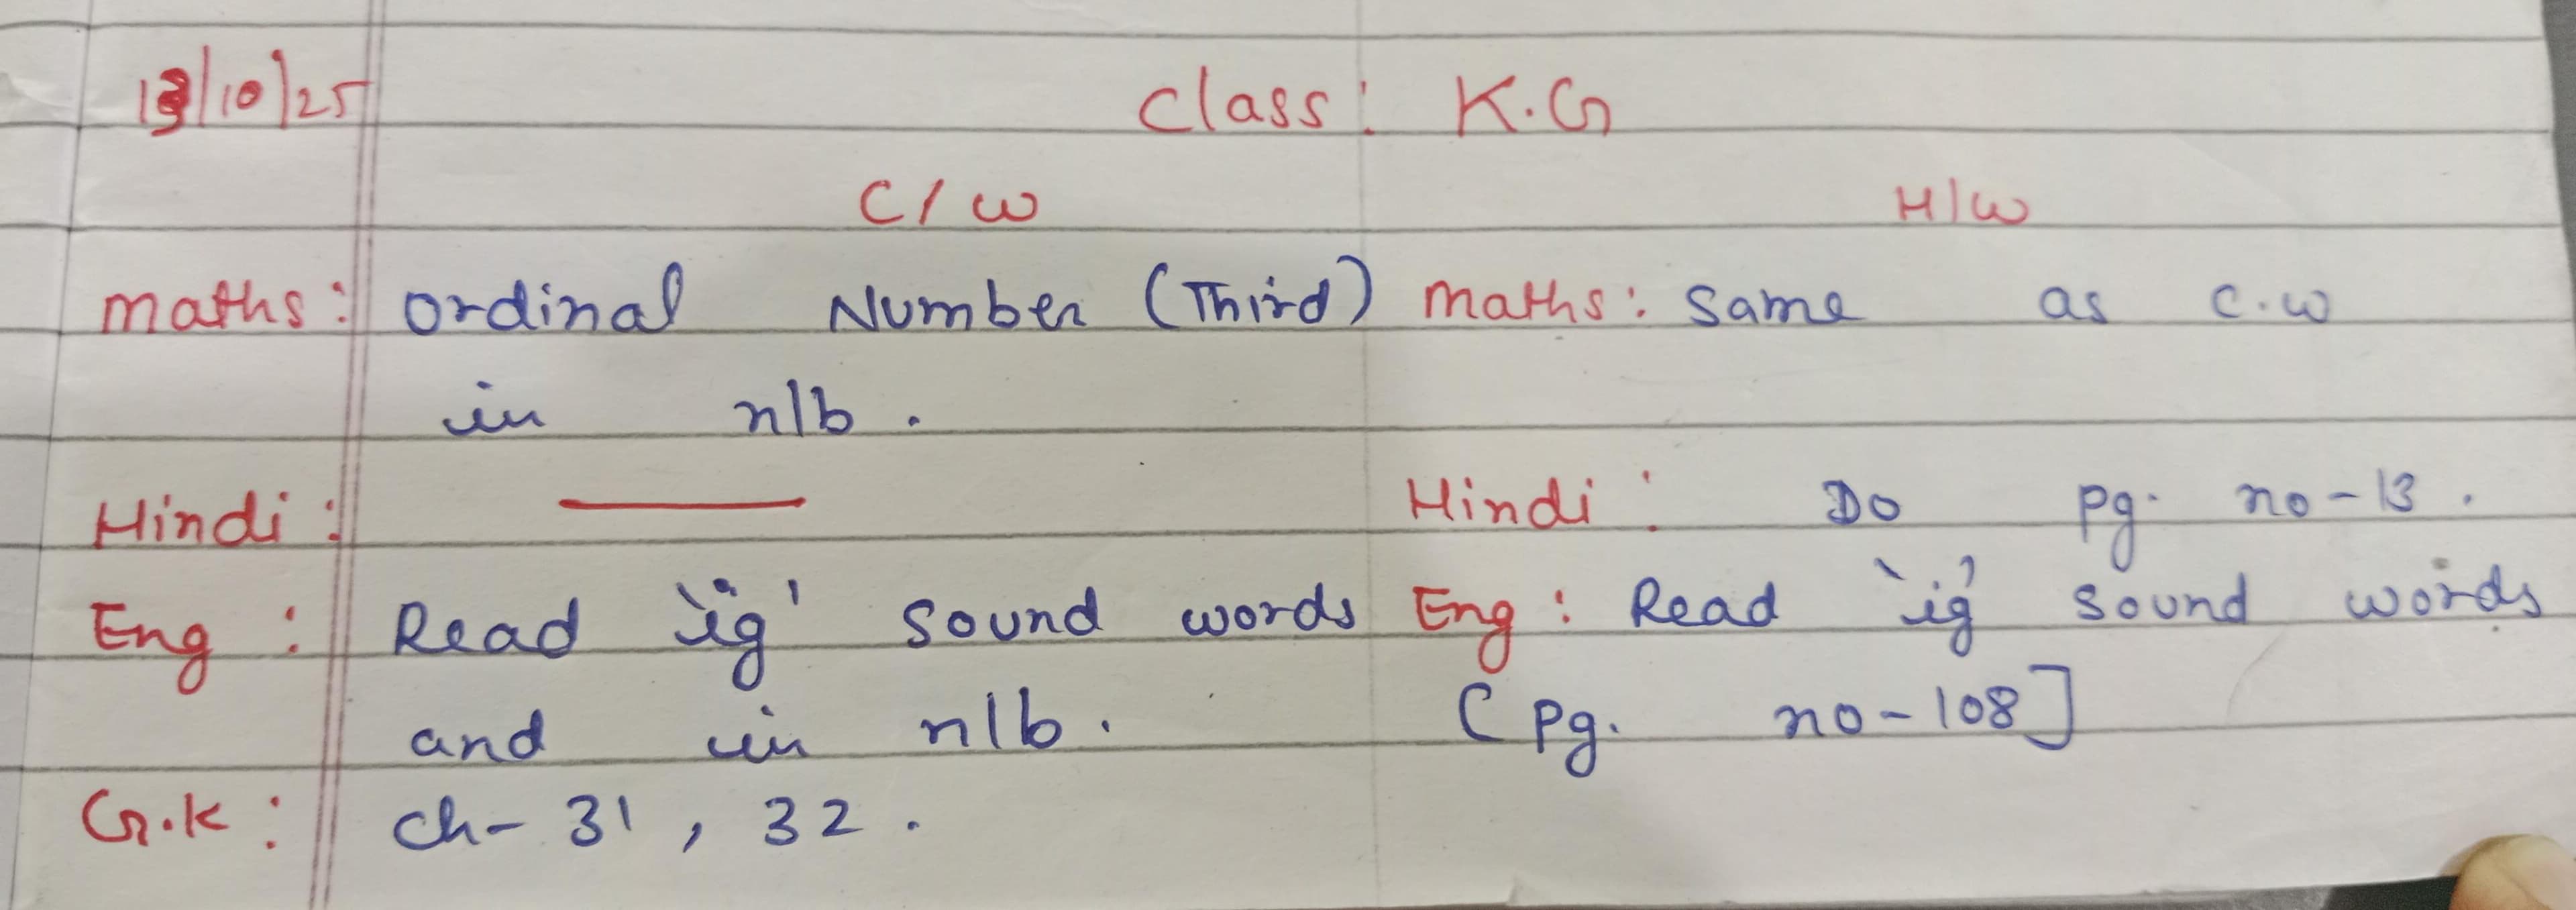 13/10/25 Class: K.G
C/W H/W
Maths: Ordinal Number (Third) Maths: Same as C.W
in n/b.
Hindi: — Hindi: Do pg. no-13.
Eng: Read 'ig' sound words Eng: Read 'ig' sound words
and in n/b. [Pg. no-108]
G.K: Ch-31, 32.